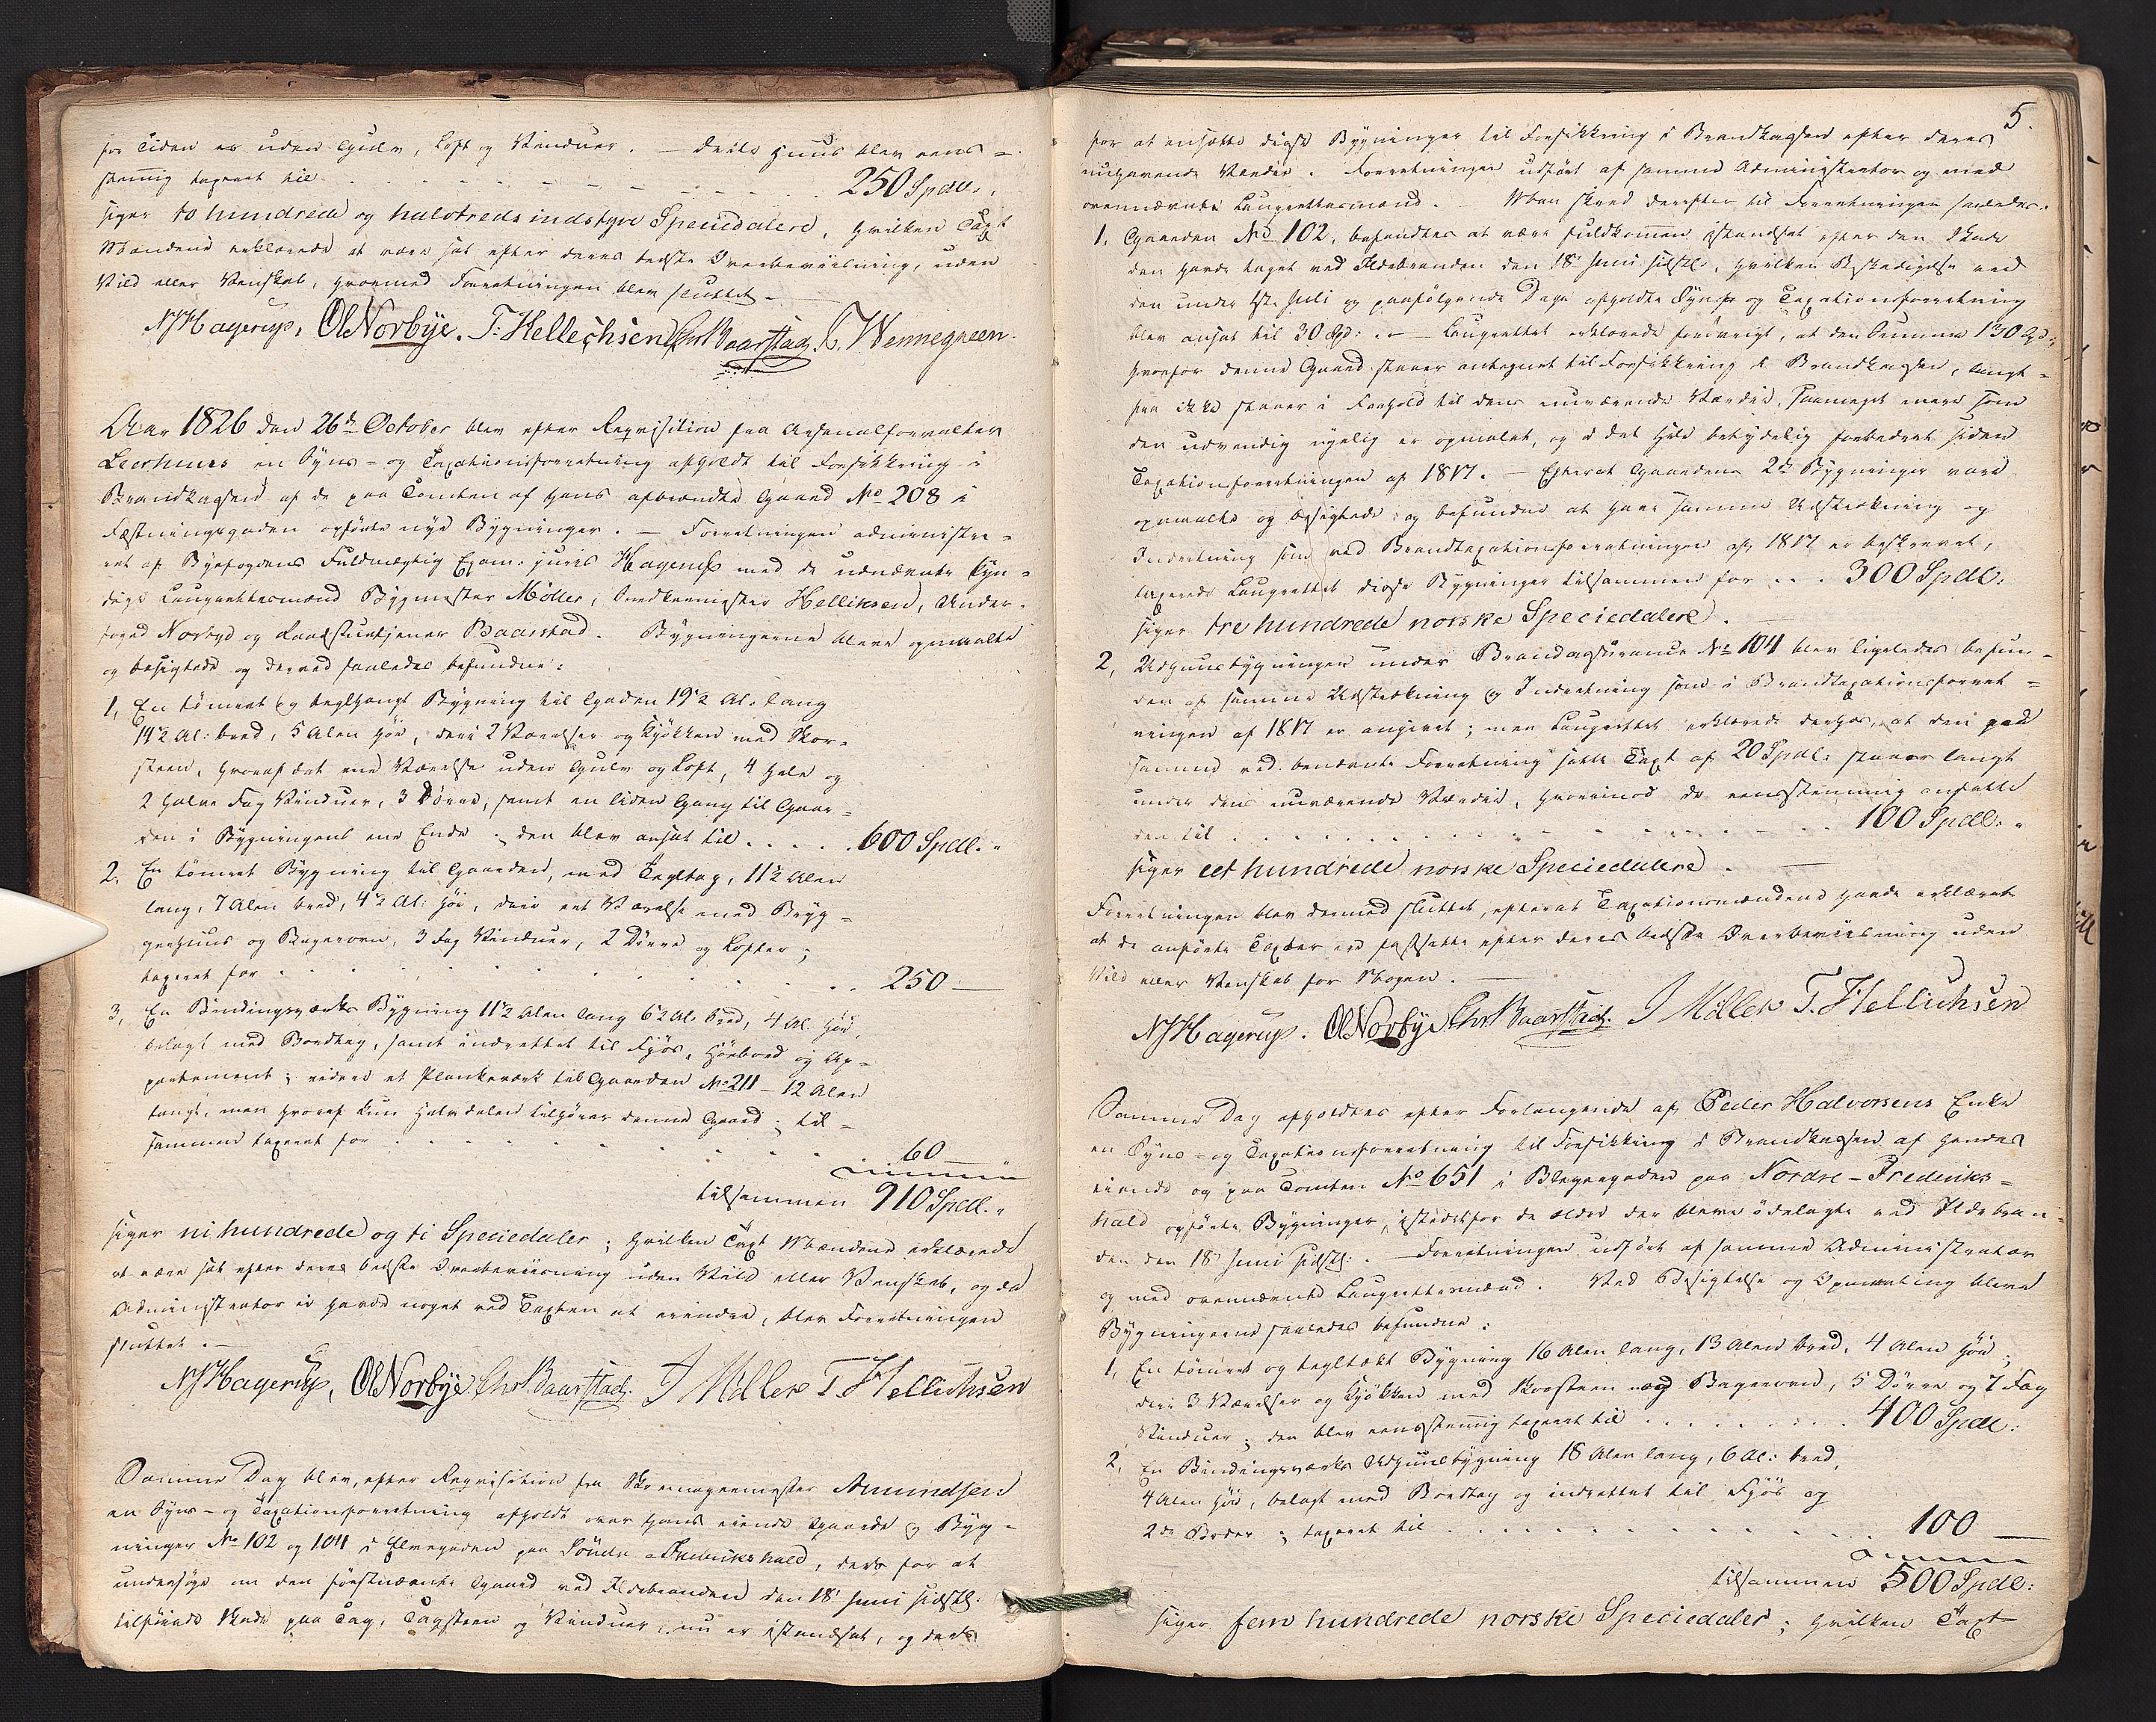 for Tiden er uden Gulv, Loft og Vinduer. — Dette Huus blev eens=
stemig taxeret til . . . . . . . . . . 250 Spdlr.
siger to hundrede og halvtredsindstyve Speciedalere, hvilken Taxt
Mændene erklærede at være sat efter deres bedste Overbeviisning, uden
Vild eller Venskab, hvormed Forretningen blev sluttet. —
NJHagerup. ONorbye. T: Hellechsen Chr Baarstad. L. Wennegreen.
Aar 1826 den 26de October blev efter Reqvisition fra Arsenalforvalter
Leerhuus en Syns- og Taxationsforretning afholdt til Forsikkring i
Brandkassen af de paa Tomten af hans afbrændte Gaard No 208 i
Fæstningsgaden opførte nye Bygninger. — Forretningen administre=
ret af Byefogdens Fuldmægtig Exam: juris Hagerup med de udnævnte kyn=
dige Laugrettesmænd Bygmester Møller, Snedkermester Helliksen, Under=
foged Norbye og Raadstuetjener Baarstad. Bygningerne bleve opmaalte
og besigtede og derved saaledes befundne:
1, En tømret og teglhængt Bygning til Gaden 19½ Al. lang
14½ Al: bred, 5 Alen høi, deri 2 Værelser og Kjøkken med Skor=
steen, hvoraf det ene Værelse uden Gulv og Loft, 4 hele og
2 halve Fag Vinduer, 3 Dørre, samt en liden Gang til Gaar=
den i Bygningens ene Ende; den blev ansat til . . . . . 600 Spdl. „
2, En tømret Bygning til Gaarden, med Tegltag, 11½ Alen
lang, 7 Alen bred, 4½ Al: høi, deri eet Værelse med Bryg=
gerhuus og Bagerovn, 3 Fag Vinduer, 2 Dørre og Lofter;
taxeret for . . . . . . . . . . 250 —
3, En Bindingsværks Bygning 11½ Alen lang 6½ Al. bred, 4 Al. høi,
belagt med Bordtag, samt indrettet til Fjøs, Høebod og Ap=
partement; videre et Plankeværk til Gaarden No 211 – 12 Alen
langt, men hvoraf kun Halvdelen tilhører denne Gaard; til=
sammen taxeret for . . . . . . . . 60
tilsammen 910 Spdl. „
siger ni hundrede og ti Speciedaler; hvilken Taxt Mændene erklærede
at være sat efter deres bedste Overbeviisning uden Vild eller Venskab, og da
Administrator ei havde noget ved Taxten at erindre, blev Forretningen
sluttet. —
NJHagerup, ONorbye Chr Baarstad. J Møller T. Hellichsen
Samme Dag blev, efter Reqvisition fra Skoemagermester Amundsen
en Syns- og Taxationsforretning afholdt over hans eiende Gaarde og Byg=
ninger No 102 og 104 i Elvegaden paa Søndre Frederikshald, deels for at
undersøge om den førstnævnte Gaard ved Ildebranden den 18 Juni sidstl:
tilføiede Skade paa Tag, Tagsteen og Vinduer, nu er istandsat, og deels
5.
for at ansætte disse Bygninger til Forsikkring i Brandkassen efter deres
nuhavende Værdie. Forretningen udført af samme Administrator og med
ovennævnte Laugrettesmænd. — Man skred derefter til Forretningen saaledes:
1, Gaarden No 102, befandtes at være fuldkommen istandsat efter den Skade
den havde taget ved Ildebranden den 18 Juni sidstl:, hvilken Beskadigelse ved
den under 1ste Juli og paafølgende Dage afholdte Syns- og Taxationsforretning
blev ansat til 30 Spd: . — Laugrettet erklærede forøvrigt, at den Summa 130 Spd:,
hvorfor denne Gaard staaer antegnet til Forsikkring i Brandkassen, langt=
fra ikke staaer i Forhold til dens nuværende Værdie, saameget mere som
den udvendig nyelig er opmalet, og i det Hele betydelig forbedret siden
Taxationsforretningen af 1817. — Efterat Gaardens 2de Bygninger vare
opmaalte og besigtede; og befundne at have samme Udstrækning og
Indretning som ved Brandtaxationsforretningen af 1817 er beskrevet,
taxerede Laugrettet disse Bygninger tilsammen for . . . 300 Spdl:
siger tre hundrede norske Speciedalere.
2, Udhuusbygningen under Brandassurance No 104 blev ligeledes befun=
den af samme Udstrækning og Indretning som i Brandtaxationsforret=
ningen af 1817 er angivet; men Laugrettet erklærede derhos, at den paa
samme ved benævnte Forretning satte Taxt af 20 Spdl: staaer langt
under dens nuværende Værdie, hvorimod de eensstemmig ansatte
den til . . . . . . . . . . 100 Spdl. „
siger eet hundrede norske Speciedalere.
Forretningen blev dermed sluttet, efterat Taxationsmændene havde erklæret
at de anførte Taxter ere fastsatte efter deres bedste Overbeviisning uden
Vild eller Venskab for Nogen. —
NJHagerup. ONorbye Chr Baarstad. J Møller T. Hellichsen
Samme Dag afholdtes efter Forlangende af Peder Halvorsens Enke
en Syns- og Taxationsforretning til Forsikkring i Brandkassen af hendes
eiende og paa Tomten No 651 i Blegergaden paa Nordre-Frederiks=
hald opførte Bygninger, istedetfor de ældre der bleve ødelagte ved Ildebran=
den den 18 Juni sidstl: . — Forretningen udført af samme Administrator
og med ovennævnte Laugrettesmænd. Ved Besigtelse og Opmaaling bleve
Bygningerne saaledes befundne:
1, En tømret og tegltækt Bygning 16 Alen lang, 13 Alen bred, 4 Alen høi;
deri 3 Værelser og Kjøkken med Skorsteen og Bagerovn, 5 Dørre og 7 Fag
Vinduer; den blev eensstemig taxeret til . . . . . . . . 400 Spdl:
2, En Bindingsværks Udhuusbygning 18 Alen lang, 6 Al: bred,
4 Alen høi, belagt med Bordtag og indrettet til Fjøs og
2de Boder; taxeret til . . . . . . . . . . 100 —
tilsammen 500 Spdl:
siger fem hundrede norske Speciedaler; hvilken Taxt